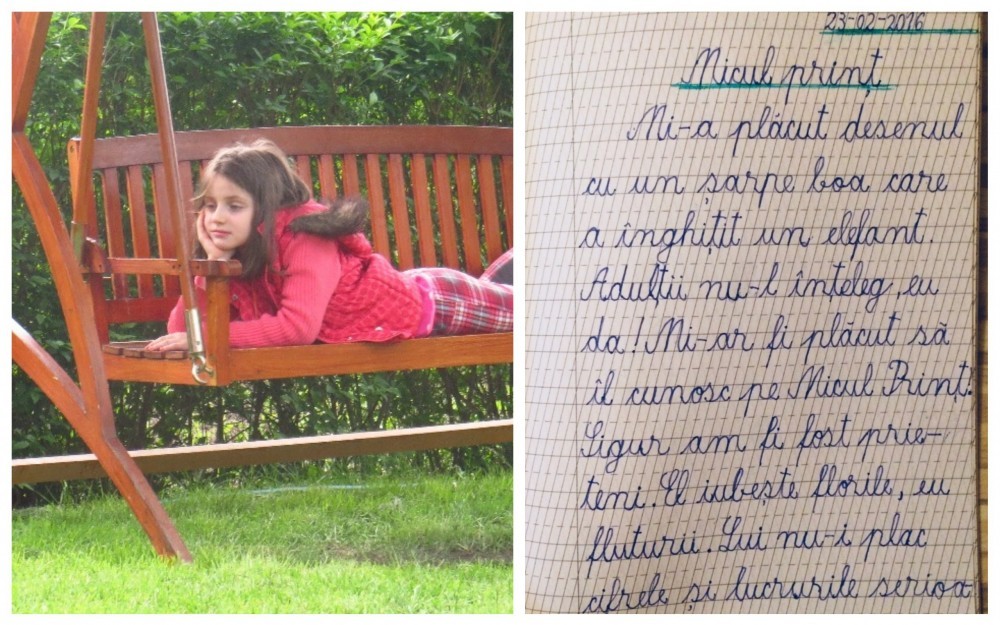 23-02-2016
Micul prinț
Mi-a plăcut desenul
cu un șarpe boa care
a înghițit un elefant
Adulții nu-l înțeleg, eu
da! Mi-ar fi plăcut să
îl cunosc pe Micul Prinț.
Sigur am fi fost prie-
teni. El iubește florile, eu
fluturii. Lui nu-i plac
cifrele și lucrurile serioa